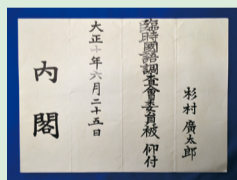 杉村廣太郎
臨時國語調査會委員被 仰付
大正十年六月二十五日
内閣